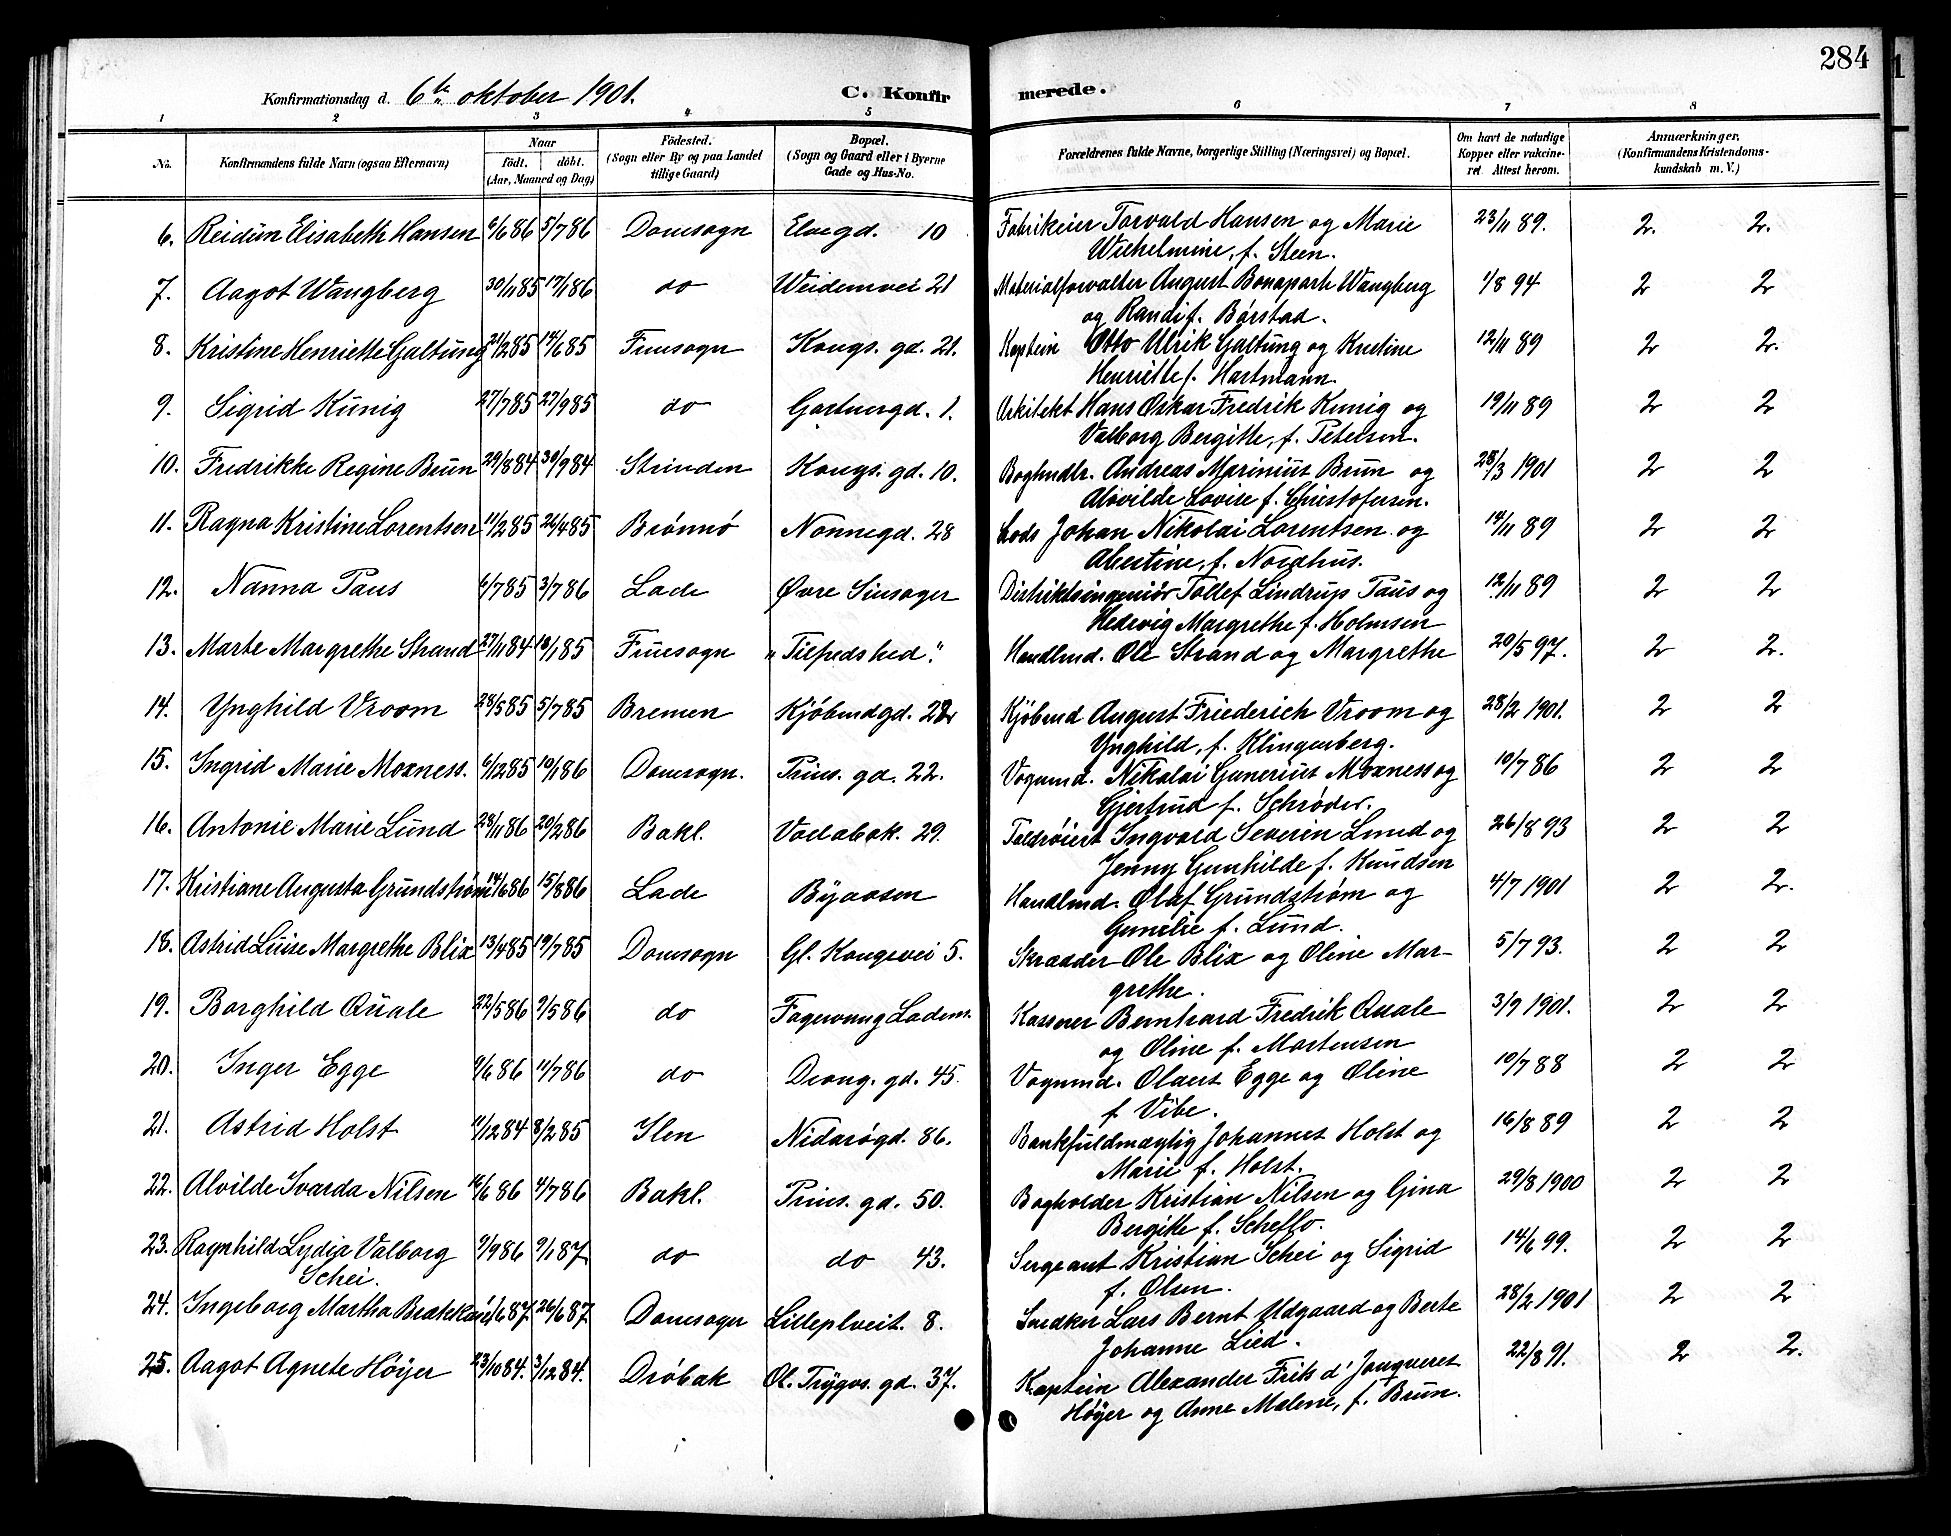 284
Konfirmationsdag d. 6te oktober 1901. C. Konfirmerede.
1 2 3 4 5 6 7 8
No. Konfirmandens fulde Navn (ogsaa Efternavn) Naar født. døbt. (Aar, Maaned og Dag) Fødested. (Sogn eller By og paa Landet tillige Gaard) Bopæl. (Sogn og Gaard eller i Byerne Gade og Hus-No. Forældrenes fulde Navne, borgerlige Stilling (Næringsvei) og Bopæl. Om havt de naturlige Kopper eller vakcineret. Attest herom. Anmærkninger. (Konfirmandens Kristendomskundskab m. V.)
6. Reidun Elisabeth Hansen 6/6 86 5/7 86 Domsogn Elvegd. 10 Fabrikeier Torvald Hansen og Marie 23/11 89. 2. 2.
Wilhelmine, f. Steen.
7. Aagot Wangberg 30/11 85 17/1 86 do Weidemvei 21 Materialforvalter August Bonaparte Wangberg 1/8 94 2 2
og Randi f. Børstad.
8. Kristine Henriette Galtung 21/2 85 14/6 85 Fruesogn Kongs. gd. 21. Kaptein Otto Ulrik Galtung og Kristine 12/11 89 2 2.
Henriette f. Hartmann.
9. Sigrid Kunig 27/7 85 27/9 85 do Gartnergd. 1. Arkitekt Hans Oskar Fredrik Kunig og 19/11 89 2 2
Valborg Bergitte, f. Petersen.
10. Fredrikke Regine Brun 29/8 84 30/9 84 Strinden Kongs. gd. 10. Boghndlr. Andreas Marinius Brun og 28/3 1901 2 2
Alvilde Lovise f. Christofersen.
11. Ragna Kristine Lorentsen 11/2 85 26/4 85 Brønnø Nonnegd. 28 Lods Johan Nikolai Lorentsen og 14/11 89 2 2
Albertine, f. Nordhus.
12. Nanna Paus 6/7 85 3/7 86 Lade Øvre Singsager Distriktsingeniør Tollef Lindrup Paus og 12/11 89 2 2
Hedevig Margrethe f. Holmsen
13. Marte Margrethe Strand 27/11 84 18/1 85 Fruesogn „Tilfredshed". Handlmd. Ole Strand og Margrethe 20/5 97. 2 2.
14. Ynghild Vroom 28/5 85 5/7 85 Bremen Kjøbmdgd. 22 Kjøbmd August Friederich Vroom og 28/2 1901. 2 2
Ynghild, f. Klingenberg.
15. Ingrid Marie Moxness. 6/12 85 10/1 86 Domsogn. Prins. gd. 22. Vognmd. Nikolai Gunerius Moxness og 10/7 86 2 2
Gjertrud f. Schrøder.
16. Antonie Marie Lund 28/11 86 20/2 86 Bakl. Vadabak. 29. Toldrøiert Ingvald Severin Lund og 26/8 93 2 2
Jenny Gunhilde f. Knudsen
17. Kristiane Augusta Grundstrøm 14/6 86 15/8 86 Lade Byaasen Handlmd. Olaf Grundstrøm og 4/7 1901 2 2.
Gunelie f. Lund.
18. Astrid Luise Margrethe Blix 13/4 85 19/7 85 Domsogn Gl. Kongevei 5. Skrædder Ole Blix og Oline Mar- 5/7 93. 2 2
grethe.
19. Borghild Quale 22/5 86 9/5 86 do Fagervang Ladem. Kasserer Bernhard Fredrik Quale 3/9 1901. 2 2
og Oline f. Mortensen
20. Inger Egge 9/6 86 11/7 86 do Drong. gd. 45. Vognmd. Olaus Egge og Oline 10/7 88 2 2
f Vibe.
21. Astrid Holst 11/12 84 8/2 85 Ilen Nidarøgd. 86. Bankfuldmægtig Johannes Holst og 16/8 89 2 2
Marie f. Holst.
22. Alvilde Svarda Nilsen 16/6 86 4/7 86 Bakl. Prins. gd. 50. Bogholder Kristian Nilsen og Gina 29/8 1900 2 2
Bergitte f. Scheflo.
23. Ragnhild Lydia Valborg 9/9 86 9/1 87 do do 43. Sergeant Kristian Schei og Sigrid 14/6 99. 2 2
Schei. f. Olsen.
24. Ingeborg Martha Brækkan 1/6 87 26/6 87 Domsogn Lilleplveit. 8. Snedker Lars Bernt Udgaard og Berte 28/2 1901 2 2
Johanne Lied.
25. Aagot Agnete Høyer 23/10 84. 3/12 84. Drøbak Ol. Trygvs. gd. 37. Kaptein Alexander Frits d'Jonqueres 22/8 91. 2 2.
Høyer og Anne Malene, f. Brun.